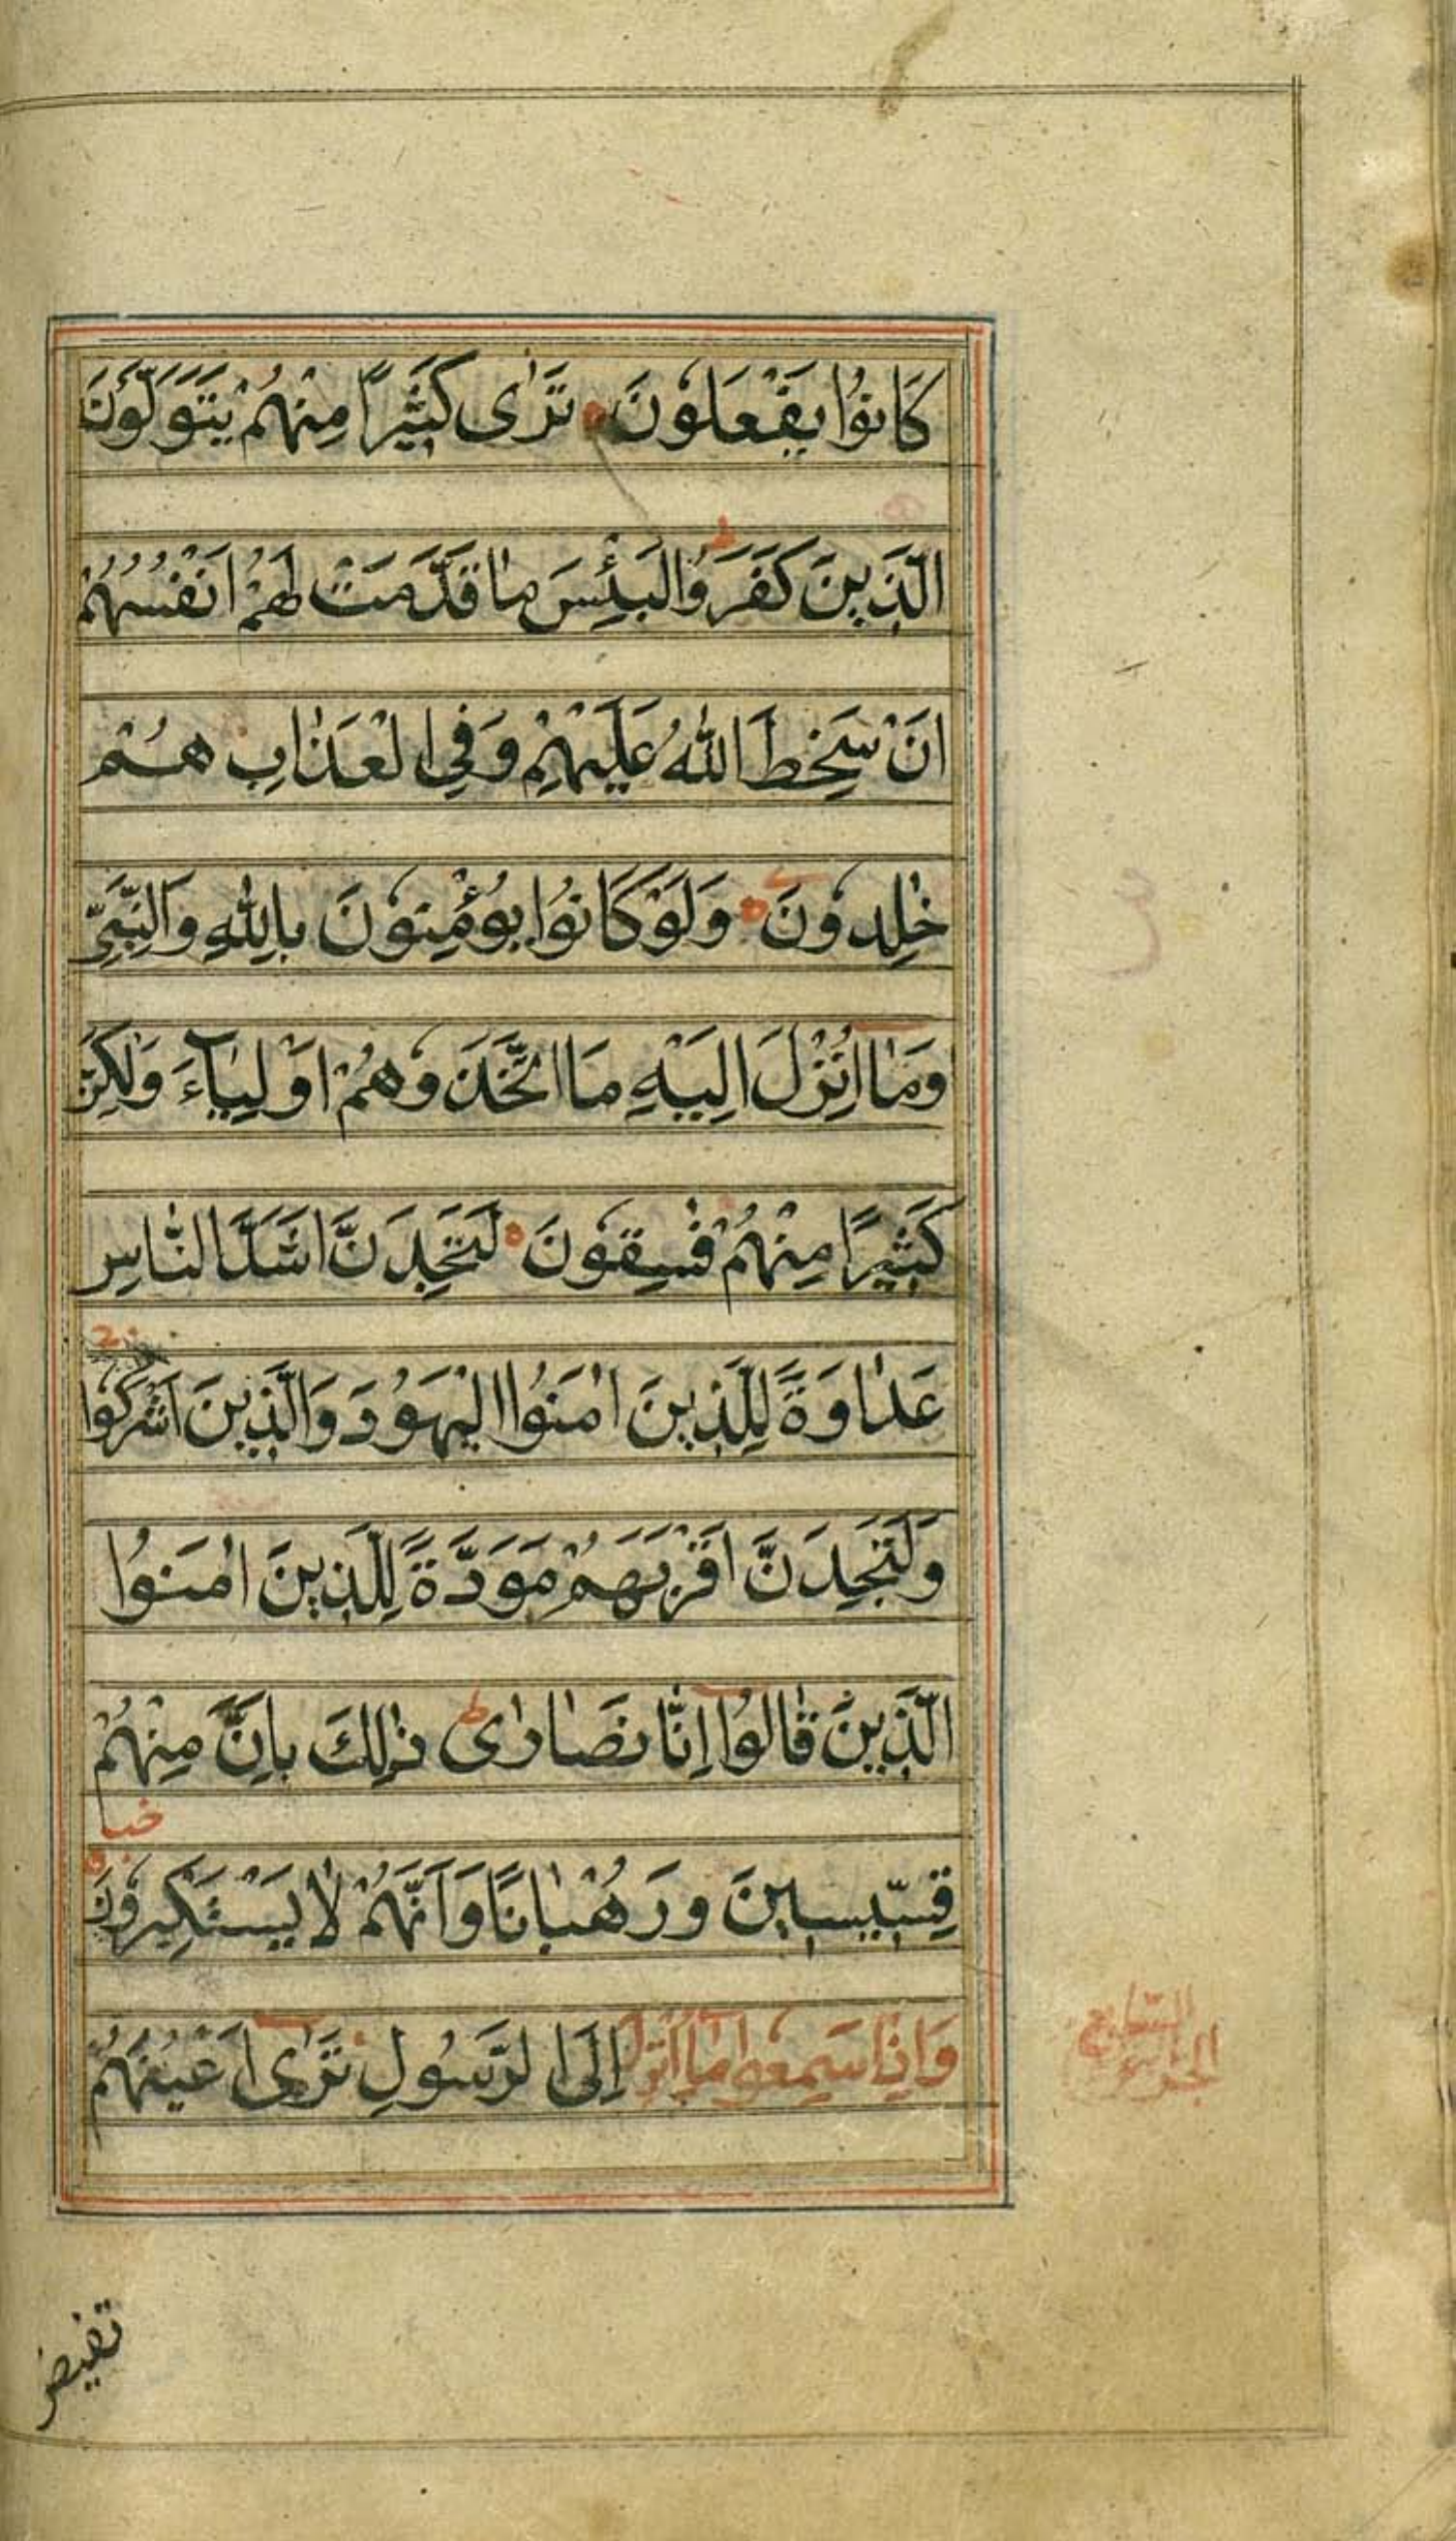 كَانُوا يَفْعَلُونَ تَرٰى كَثِيْرًا مِنْهُمْ يَتَوَلَّوْنَ
الَّذِينَ كَفَرُوا لَبِئْسَ مٰا قَدَّمَتْ لَهُمْ اَنْفُسُهُمْ
اَنْ سَخِطَ اللّٰهُ عَلَيْهِمْ وَفِى الْعَذٰابِ هُمْ
خٰلِدُونَ وَلَوْ كَانُوا يُؤْمِنُونَ بِاللّٰهِ وَالنَّبِىِّ
وَمٰا اُنْزِلَ اِلَيْهِ مَا اتَّخَذُوهُمْ اَوْلِيٰآءَ وَلٰكِنَّ
كَثِيْرًا مِنْهُمْ فٰسِقُونَ لَتَجِدَنَّ اَشَدَّ النّٰاسِ
عَدٰاوَةً لِلَّذِينَ اٰمَنُوا الْيَهُوْدَ وَالَّذِينَ اَشْرَكُوا
وَلَتَجِدَنَّ اَقْرَبَهُمْ مَوَدَّةً لِلَّذِينَ اٰمَنُوا
الَّذِينَ قٰالُوا اِنّٰا نَصٰارٰى ذٰلِكَ بِاَنَّ مِنْهُمْ
قِسِّيسِينَ وَرُهْبٰانًا وَاَنَّهُمْ لٰا يَسْتَكْبِرُونَ
وَاِذٰا سَمِعُوا مٰا اُنْزِلَ اِلَى الرَّسُولِ تَرٰى اَعْيُنَهُمْ
الجزء السابع
ع
تفيض